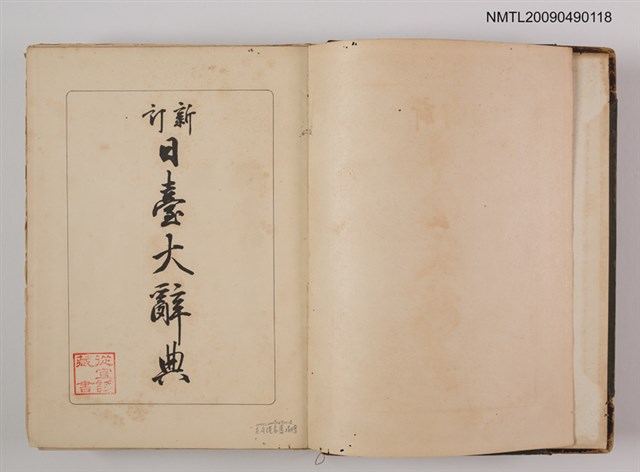 NMTL20090490118
新訂
日臺大辭典